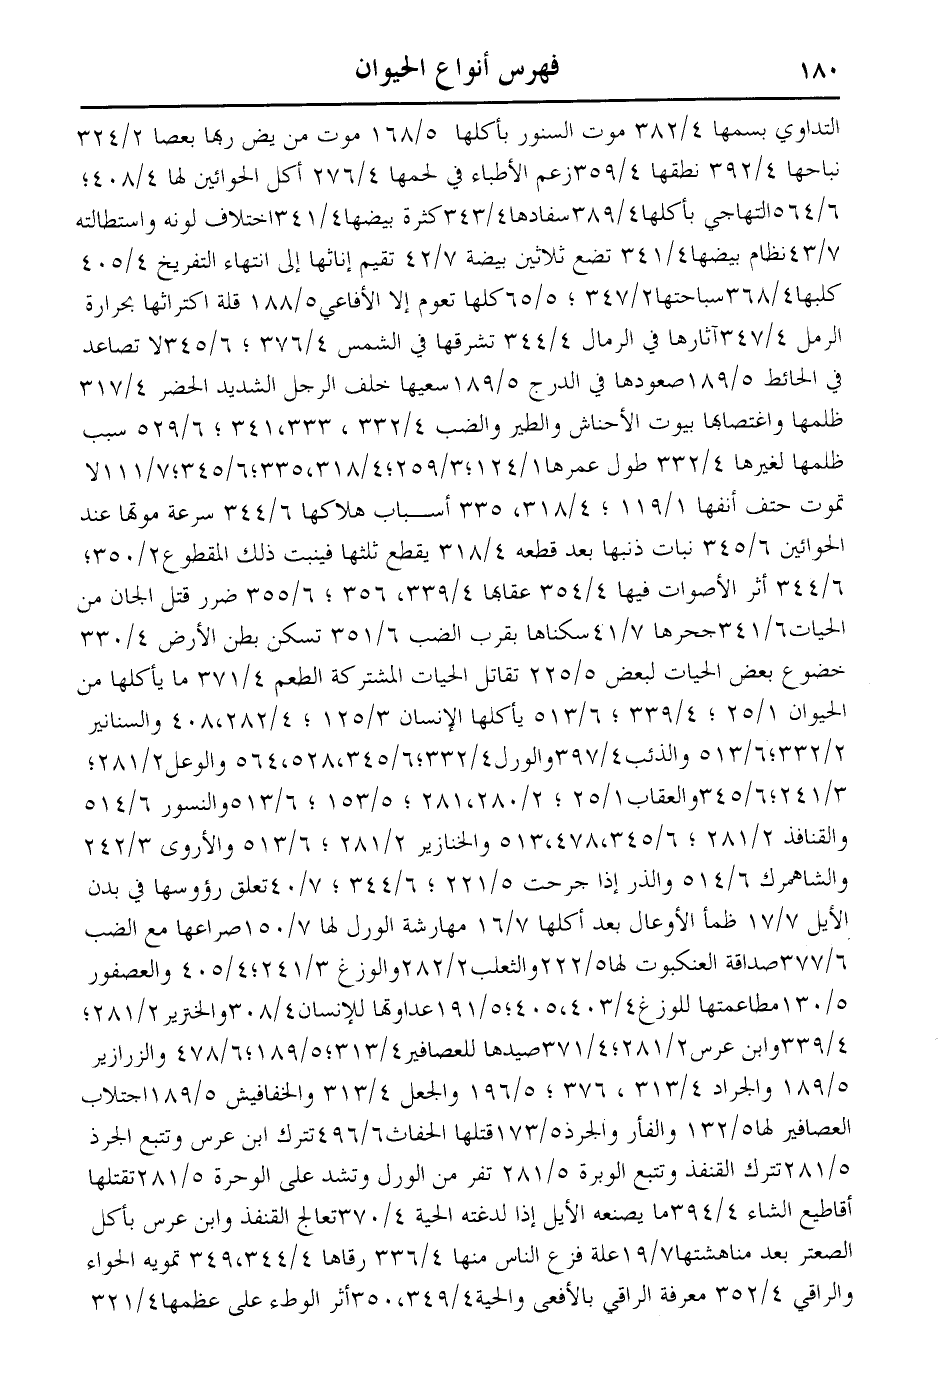 ١٨٠ فهرس أنواع الحيوان
التداوي بسمها ٣٨٢/٤ موت السنور بأكلها ١٦٨/٥ موت من يضربها بعصا ٣٢٤/٢
نباحها ٣٩٢/٤ نطقها ٣٥٩/٤زعم الأطباء في لحمها ٢٧٦/٤ أكل الحوائين لها ٤٠٨/٤؛
٥٦٤/٦التهاجي بأكلها٣٨٩/٤سفادها٣٤٣/٤كثرة بيضها٣٤١/٤اختلاف لونه واستطالته
٤٣/٧نظام بيضها٣٤١/٤ تضع ثلاثين بيضة ٤٢/٧ تقيم إناثها إلى انتهاء التفريخ ٤٠٥/٤
كلبها٣٦٨/٤سباحتها٣٤٧/٢ ؛ ٦٥/٥كلها تعوم إلا الأفاعي١٨٨/٥ قلة اكتراثها بحرارة
الرمل ٣٤٧/٤آثارها في الرمال ٣٤٤/٤ تشرقها في الشمس ٣٧٦/٤ ؛ ٣٤٥/٦لا تصاعد
في الحائط ١٨٩/٥صعودها في الدرج ١٨٩/٥سعيها خلف الرجل الشديد الحضر ٣١٧/٤
ظلمها واغتصابها بيوت الأحناش والطير والضب ٣٣٢/٤ ، ٣٤١،٣٣٣ ؛ ٥٢٩/٦ سبب
ظلمها لغيرها ٣٣٢/٤ طول عمرها١٢٤/١؛٢٥٩/٣؛٣٣٥،٣١٨/٤؛٣٤٥/٦؛١١١/٧لا
تموت حتف أنفها ١١٩/١ ؛ ٣١٨/٤، ٣٣٥ أسباب هلاكها ٣٤٤/٦ سرعة موتها عند
الحوائين ٣٤٥/٦ نبات ذنبها بعد قطعه ٣١٨/٤ يقطع ثلثها فينبت ذلك المقطوع٣٥٠/٢؛
٣٤٤/٦ أثر الأصوات فيها ٣٥٤/٤ عقابها ٣٣٩/٤، ٣٥٦ ؛ ٣٥٥/٦ ضرر قتل الجان من
الحيات٣٤١/٦جحرها ٤١/٧سكناها بقرب الضب ٣٥١/٦ تسكن بطن الأرض ٣٣٠/٤
خضوع بعض الحيات لبعض ٢٢٥/٥ تقاتل الحيات المشتركة الطعم ٣٧١/٤ ما يأكلها من
الحيوان ٢٥/١ ؛ ٣٣٩/٤ ؛ ٥١٣/٦ يأكلها الإنسان ١٢٥/٣ ؛ ٤٠٨،٢٨٢/٤ والسنانير
٣٣٢/٢؛٥١٣/٦ والذئب٣٩٧/٤والورل٣٣٢/٤؛٥٦٤،٥٢٨،٣٤٥/٦ والوعل٢٨١/٢؛
٢٤١/٣؛٣٤٥/٦والعقاب٢٥/١ ؛ ٢٨١،٢٨٠/٢ ؛ ١٥٣/٥ ؛ ٥١٣/٦والنسور ٥١٤/٦
والقنافذ ٢٨١/٢ ؛ ٥١٣،٤٧٨،٣٤٥/٦ والخنازير ٢٨١/٢ ؛ ٥١٣/٦ والأروى ٢٤٢/٣
والشاهمرك ٥١٤/٦ والذر إذا جرحت ٢٢١/٥ ؛ ٣٤٤/٦ ؛ ٤٠/٧تعلق رؤوسها في بدن
الأيل ١٧/٧ ظمأ الأوعال بعد أكلها ١٦/٧ مهارشة الورل لها ١٥٠/٧صراعها مع الضب
٣٧٧/٦صداقة العنكبوت لها٢٢٢/٥والثعلب٢٨٢/٢والوزغ ٢٤١/٣؛٤٠٥/٤ والعصفور
١٣٠/٥مطاعمتها للوزغ٤٠٥،٤٠٣/٤؛١٩١/٥عداوتها للإنسان٣٠٨/٤والخنزير٢٨١/٢؛
٣٣٩/٤وابن عرس٢٨١/٢؛٣٧١/٤صيدها للعصافير٣١٣/٤؛١٨٩/٥؛٤٧٨/٦ والزرازير
١٨٩/٥ والجراد ٣١٣/٤ ، ٣٧٦ ؛ ١٩٦/٥ والجعل ٣١٣/٤ والخفافيش ١٨٩/٥اجتلاب
العصافير لها١٣٢/٥ والفأر والجرذ١٧٣/٥قتلها الحفاث٤٩٦/٦تترك ابن عرس وتتبع الجرذ
٢٨١/٥تترك القنفذ وتتبع الوبرة ٢٨١/٥ تفر من الورل وتشد على الوحرة ٢٨١/٥تقتلها
أقاطيع الشاء ٣٩٤/٤ما يصنعه الأيل إذا لدغته الحية ٣٧٠/٤تعالج القنفذ وابن عرس بأكل
الصعتر بعد مناهشتها١٩/٧علة فزع الناس منها ٣٣٦/٤ رقاها ٣٤٩،٣٤٤/٤ تمويه الحواء
والراقي ٣٥٢/٤ معرفة الراقي بالأفعى والحية٣٥٠،٣٤٩/٤أثر الوطء على عظمها٣٢١/٤